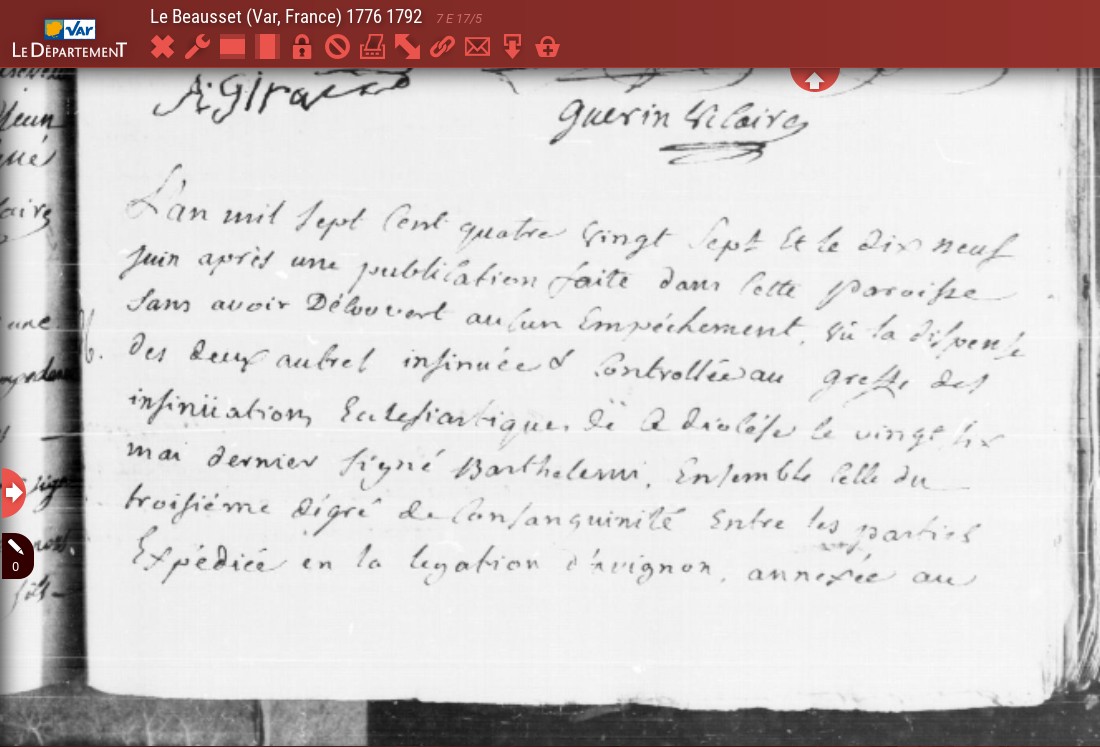 Le Beausset (Var, France) 1776 1792 7 E 17/5
Var
LE DÉPARTEMENT
A: Giraud
Guerin Vicaire
L'an mil sept cent quatre vingt sept et le dix neuf
juin après une publication faite dans cette paroisse
sans avoir Découvert aucun Empéchement, vû la dispense
des deux autres insinuée & Controllée au greffe des
insinüations Ecclesiastiques dë ce diocése le vingt six
mai dernier signé Barthelemi, Ensemble celle du
troisiéme dégré de Consanguinité Entre les parties
Expédiée en la legation d'avignon, annexée au
0